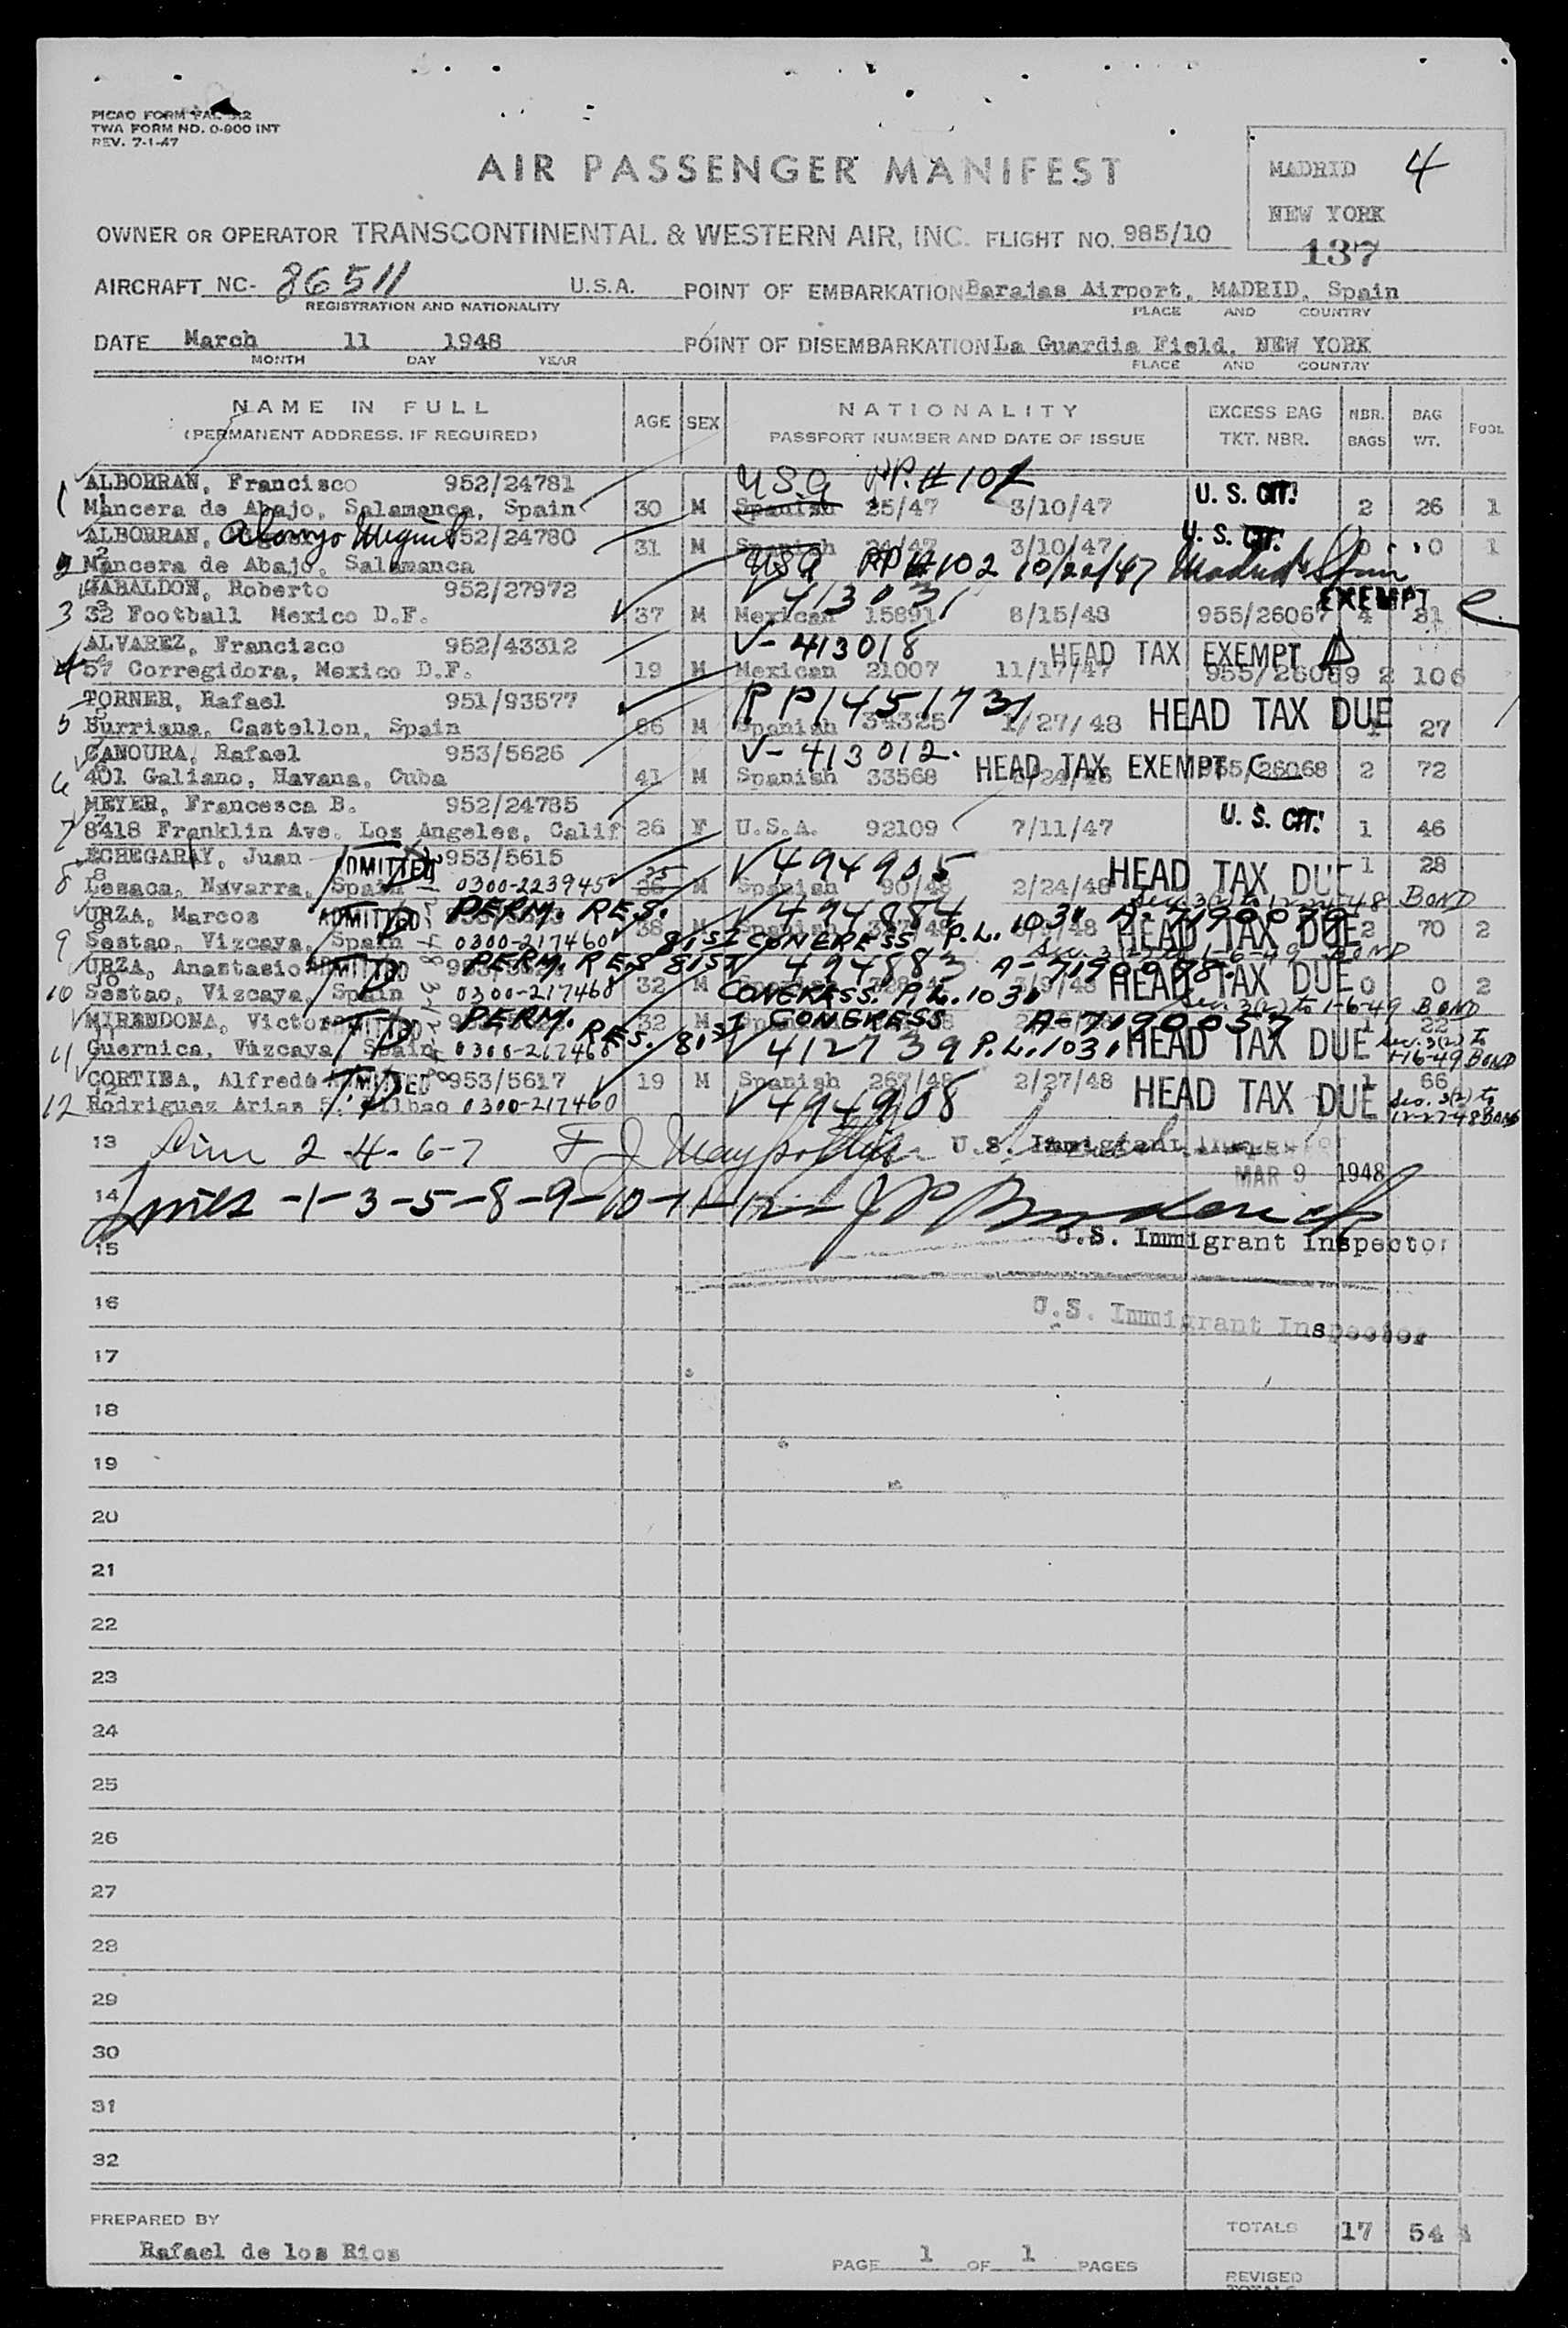 PICAO FORM FAL
TWA FORM NO. 0-800 INT
REV. 7-1-47
AIR PASSENGER MANIFEST
MADRID 4
NEW YORK
137
OWNER OR OPERATOR TRANSCONTINENTAL & WESTERN AIR, INC. FLIGHT NO. 985/10
AIRCRAFT NC- 86511 U.S.A. POINT OF EMBARKATION Barajas Airport, MADRID, Spain
REGISTRATION AND NATIONALITY PLACE AND COUNTRY
DATE March 11 1948 POINT OF DISEMBARKATION La Guardia Field, NEW YORK
MONTH DAY YEAR PLACE AND COUNTRY
NAME IN FULL AGE SEX NATIONALITY EXCESS BAG NBR. BAG
(PERMANENT ADDRESS, IF REQUIRED) PASSPORT NUMBER AND DATE OF ISSUE TKT. NBR. BAGS WT.
ALBORRAN, Francisco 952/24781 USA
1 Mancera de Abajo, Salamanca, Spain 30 M Spanish 25/47 3/10/47 U. S. CIT. 2 26 1
ALBORRAN, Alonzo Miguel 952/24780 31 M Spanish 24/47 3/10/47 U. S. CIT. 0 0 1
2 Mancera de Abajo, Salamanca USA PP# 102 10/22/47 Madrid Spain
GABALDON, Roberto 952/27972 V 413031 EXEMPT
3 32 Football Mexico D.F. 37 M Mexican 15891 8/15/48 955/26067 4 81
ALVAREZ, Francisco 952/43312 V-413018 HEAD TAX EXEMPT
4 57 Corregidora, Mexico D.F. 19 M Mexican 21007 11/17/47 955/26069 2 106
TORNER, Rafael 951/93577 RP1451731
5 Burriana, Castellon, Spain 66 M Spanish 34325 1/27/48 HEAD TAX DUE 1 27
CANOURA, Rafael 953/5626 V-413012.
6 401 Galiano, Havana, Cuba 41 M Spanish 33568 HEAD TAX EXEMPT 955/26068 2 72
MEYER, Francesca B. 952/24785
7 8418 Franklin Ave. Los Angeles, Calif 26 F U.S.A. 92109 7/11/47 U. S. CIT. 1 46
ECHEGARAY, Juan ADMITTED 953/5615 V 494905 HEAD TAX DUE 1 28
8 Lesaca, Navarra, Spain 0300-223945 M Spanish 90/48 2/24/48 Sec. 3(2) to 12-24-48 BOND
URZA, Marcos ADMITTED PERM. RES. V 494884 P.L. 103. HEAD TAX DUE
9 Sestao, Vizcaya, Spain 0300-217460 38 M 81ST CONGRESS 2 70 2
URZA, Anastasio ADMITTED PERM. RES 81ST V 494883 HEAD TAX DUE
10 Sestao, Vizcaya, Spain 0300-217468 32 M CONGRESS. P.L. 103. 0 0 2
Sec. 3(2) to 1-6-49 BOND
MIRENDONA, Victor PERM. RES. 81ST CONGRESS A-7190037 32 M 1 22
11 Guernica, Vizcaya, Spain V 412739 P.L. 103. HEAD TAX DUE Sec. 3(2) to 1-16-49 BOND
CORTINA, Alfredo ADMITTED 953/5617 19 M Spanish 267/48 2/27/48 HEAD TAX DUE 1 66
12 Rodriguez Arias 5, Bilbao 0300-217460 V 494908 Sec. 3(2) to 12-27-48 BOND
13 Line 2-4-6-7 U.S. Immigrant Inspector
MAR 9 1948
14 Lines -1-3-5-8-9-10-11-12-
15 U.S. Immigrant Inspector
16 U.S. Immigrant Inspector
17
18
19
20
21
22
23
24
25
26
27
28
29
30
31
32
PREPARED BY TOTALS 17 54
Rafael de los Rios PAGE 1 OF 1 PAGES
REVISED
TOTALS